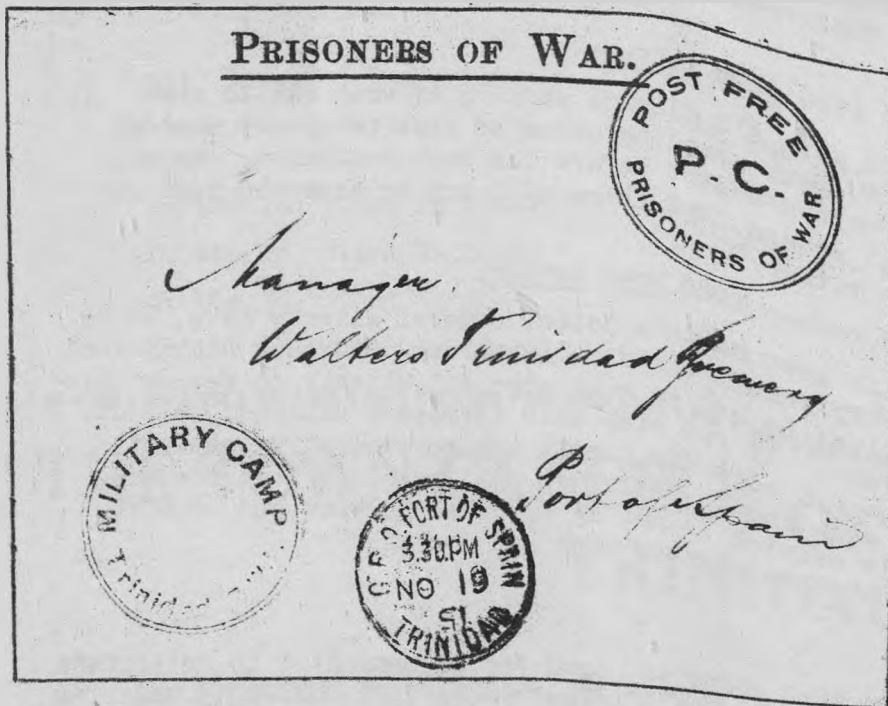 PRISONERS OF WAR.
POST FREE
P. C.
PRISONERS OF WAR
Manager.
Walters Trinidad Brewery
Port of Spain
MILITARY CAMP
Trinidad
G.P.O. PORT OF SPAIN
3.30.PM
NO 19
TRINIDAD